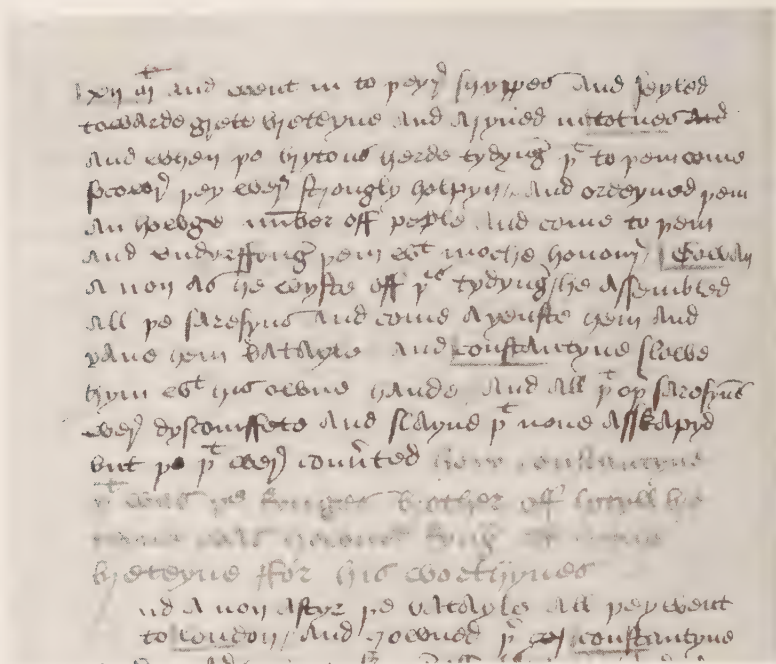 xij Mł and went in to þeyr shyppes And seyled
towarde grete breteyne And aryued in totnes And
And when þe brytons herde tydyng þt to þem come
socowr þey wer strongly holpyn / And ordeyned þem
an howge nūber off peple And come to þem
And vndyrffong þem wt moche honour / Gowan
A non as he wyste off þis tydyng / he Assembled
All þe sarosyns And come ayenste hem And
yaue hem batayle And constantyne slowe
hym wt his owne hande And all þt oþ sarosyns
wer dyscomffete And slayne þt none Asskapyd
but þo þt wer conuted how constantyne
þt was þe kynges brother off lytyll be
was kyng
breteyne ffor his worthynes
nd A non aftyr þe batayle all þey went
to london / And crowned þr constantyne